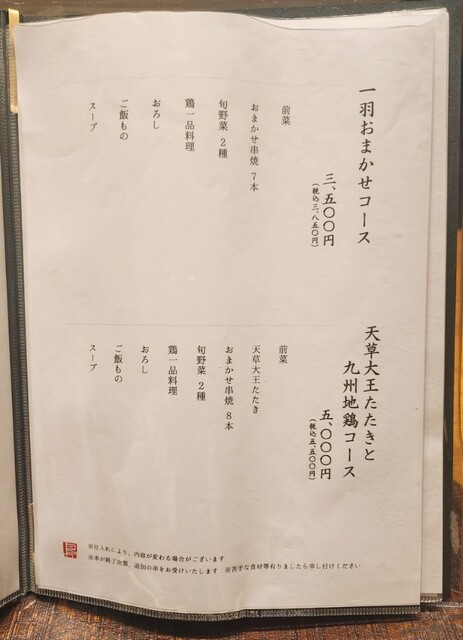 一羽おまかせコース
三、五〇〇円
(税込三、八五〇円)
前菜
おまかせ串焼 7本
旬野菜 2種
鶏一品料理
おろし
ご飯もの
スープ
天草大王たたきと
九州地鶏コース
五、〇〇〇円
(税込五、五〇〇円)
前菜
天草大王たたき
おまかせ串焼 8本
旬野菜 2種
鶏一品料理
おろし
ご飯もの
スープ
※仕入れにより、内容が変わる場合がございます
※串が終了次第、追加の串をお受けいたします ※苦手な食材等有りましたら申し付けください